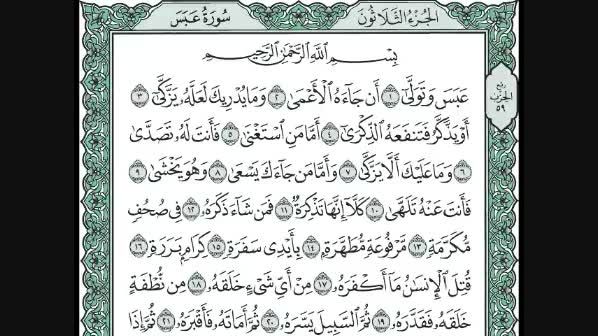 سُورَةُ عَبَسَ الجُزْءُ الثَّلَاثُونَ
بِسْمِ اللَّهِ الرَّحْمَٰنِ الرَّحِيمِ
عَبَسَ وَتَوَلَّىٰٓ ١ أَن جَآءَهُ ٱلۡأَعۡمَىٰ ٢ وَمَا يُدۡرِيكَ لَعَلَّهُۥ يَزَّكَّىٰٓ ٣
أَوۡ يَذَّكَّرُ فَتَنفَعَهُ ٱلذِّكۡرَىٰٓ ٤ أَمَّا مَنِ ٱسۡتَغۡنَىٰ ٥ فَأَنتَ لَهُۥ تَصَدَّىٰ
٦ وَمَا عَلَيۡكَ أَلَّا يَزَّكَّىٰ ٧ وَأَمَّا مَن جَآءَكَ يَسۡعَىٰ ٨ وَهُوَ يَخۡشَىٰ ٩
فَأَنتَ عَنۡهُ تَلَهَّىٰ ١٠ كَلَّآ إِنَّهَا تَذۡكِرَةٞ ١١ فَمَن شَآءَ ذَكَرَهُۥ ١٢ فِي صُحُفٖ
مُّكَرَّمَةٖ ١٣ مَّرۡفُوعَةٖ مُّطَهَّرَةِۭ ١٤ بِأَيۡدِي سَفَرَةٖ ١٥ كِرَامِۭ بَرَرَةٖ ١٦
قُتِلَ ٱلۡإِنسَٰنُ مَآ أَكۡفَرَهُۥ ١٧ مِنۡ أَيِّ شَيۡءٍ خَلَقَهُۥ ١٨ مِن نُّطۡفَةٍ
خَلَقَهُۥ فَقَدَّرَهُۥ ١٩ ثُمَّ ٱلسَّبِيلَ يَسَّرَهُۥ ٢٠ ثُمَّ أَمَاتَهُۥ فَأَقۡبَرَهُۥ ٢١ ثُمَّ إِذَا
ربع
الحزب
٥٩